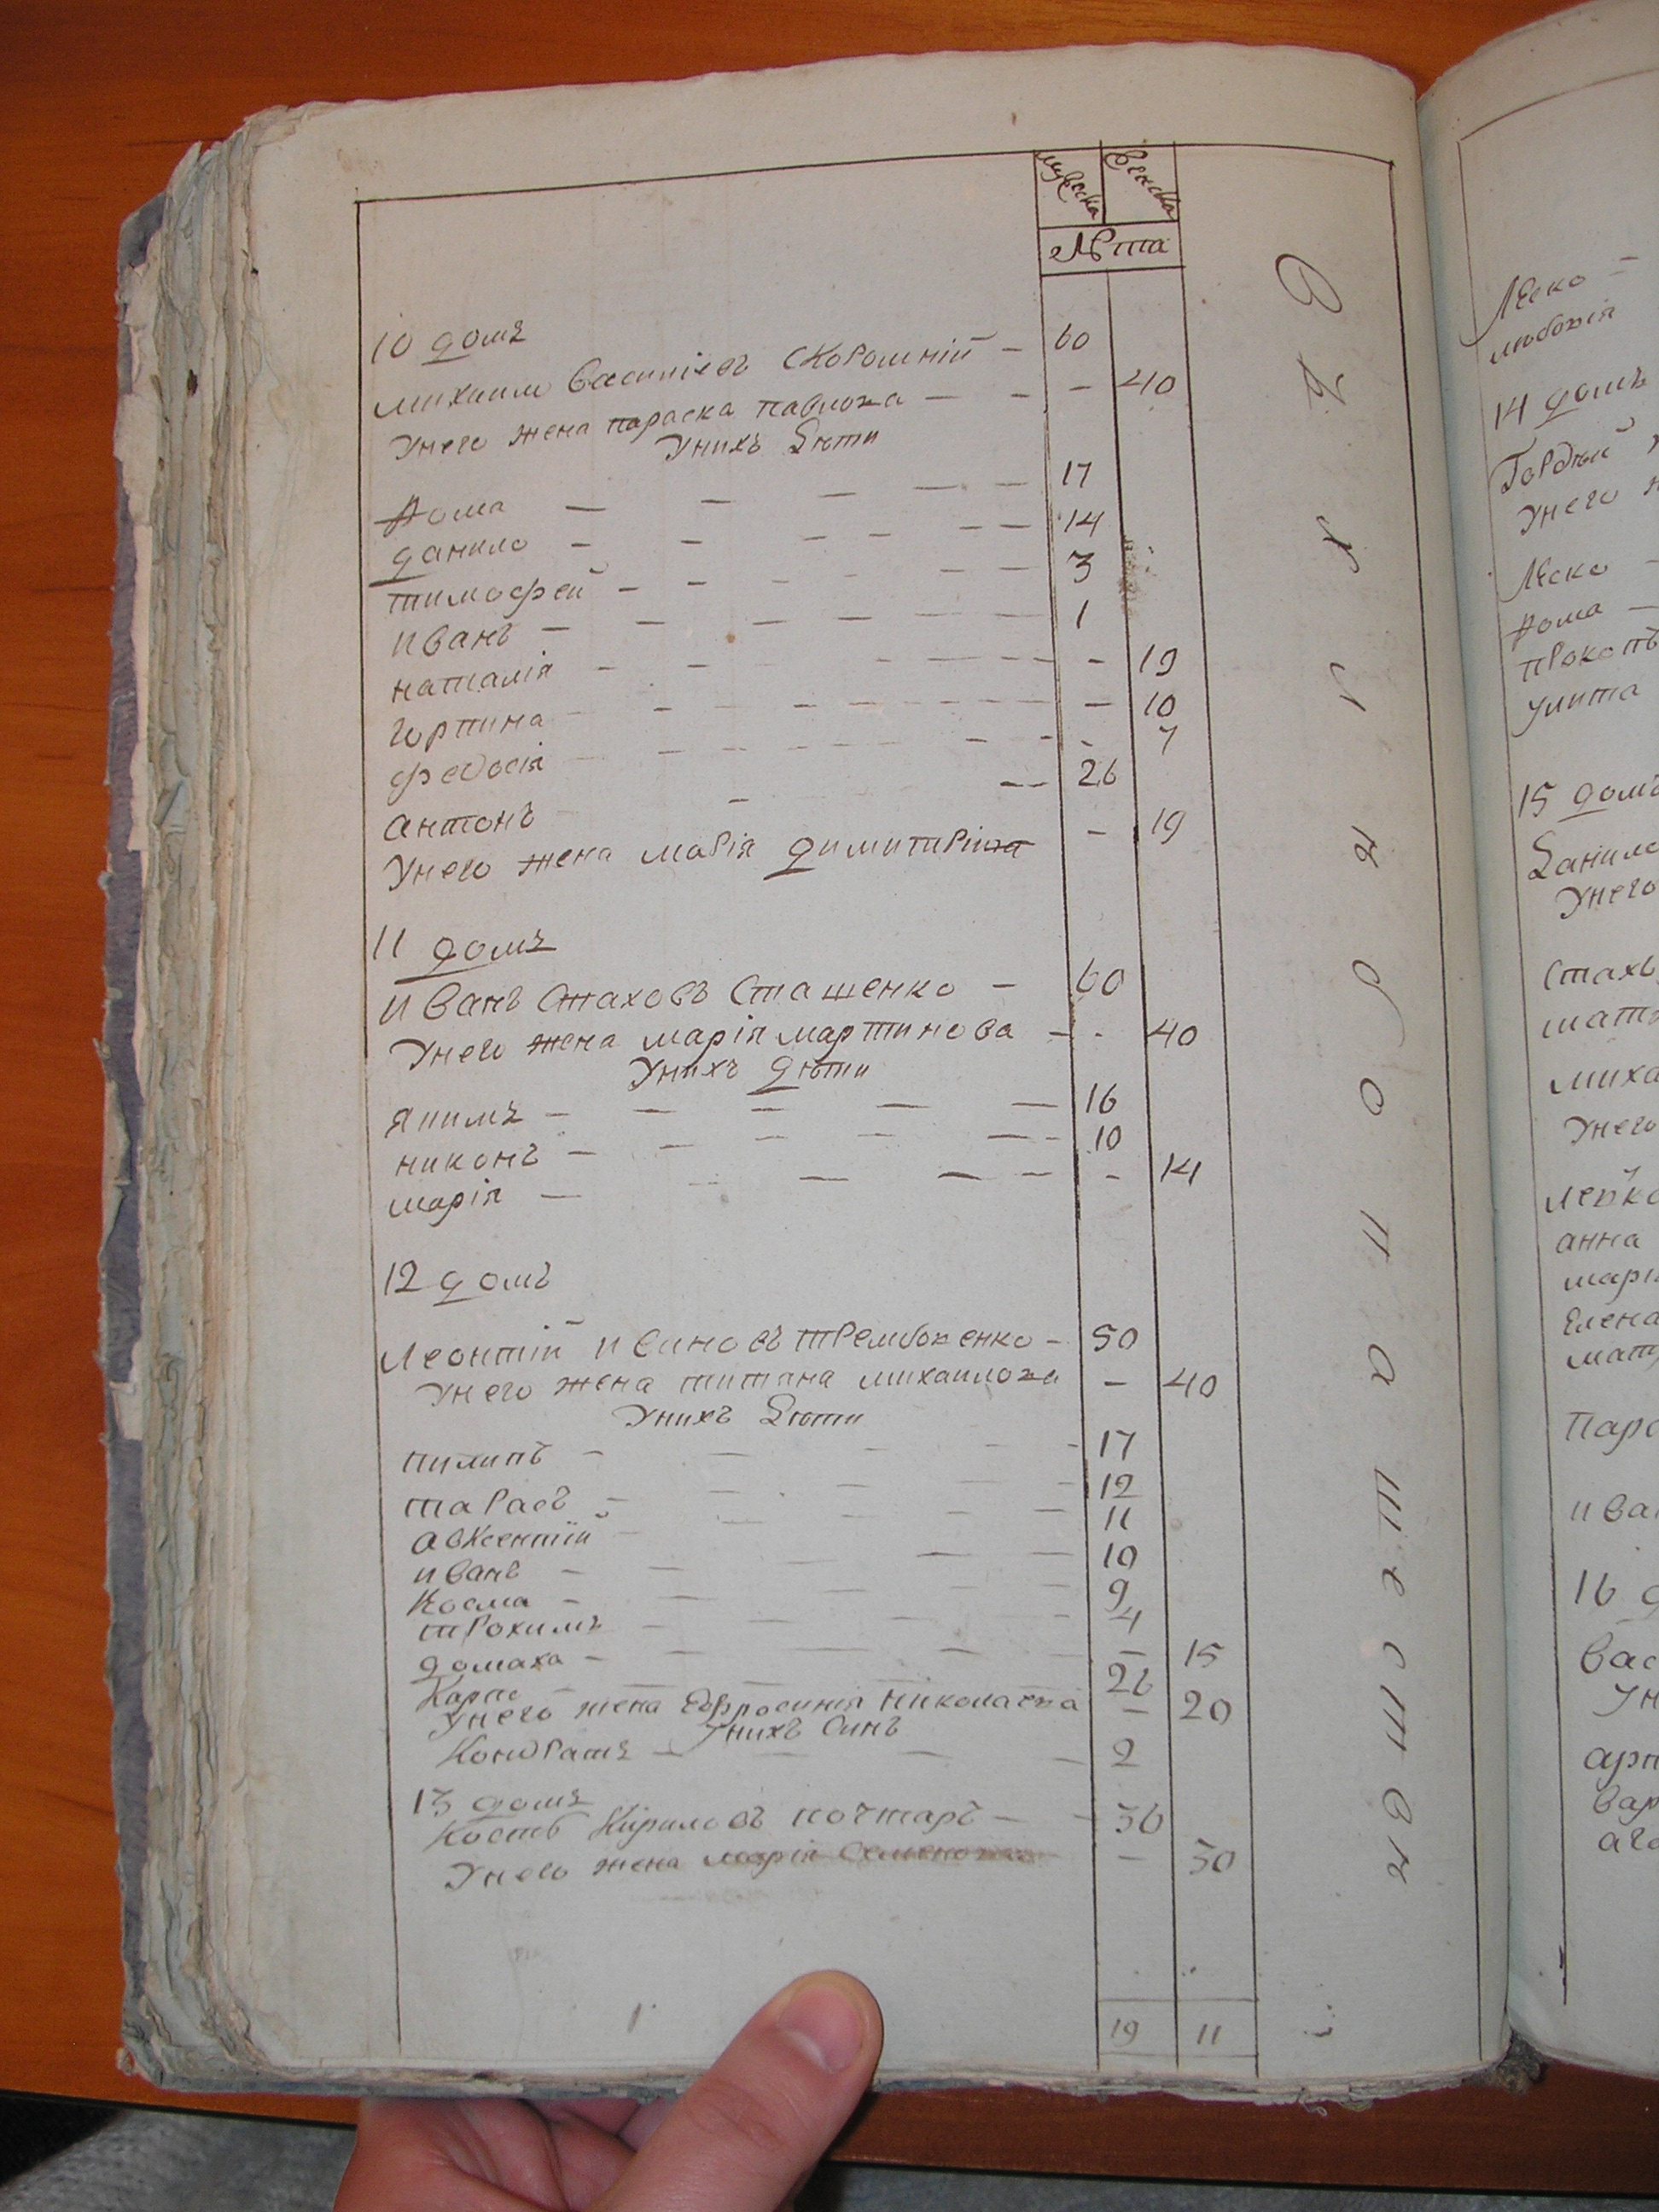 мужеска женска
Лѣта
10 домъ
михаилъ Василіевъ Скоромній — 60
Унего жена параска павлова — — — 40
Унихъ Дѣти
Хома — — — — — 17
данило — — — — — — 14
тимофей — — — — — — 3
иванъ — — — — — — 1
наталія — — — — — — 19
горпина — — — — — — 10
федосія — — — — — — 7
антонъ — — — 26
Унего жена марія димитріева — 19
11 домъ
иванъ Стаховъ Сташенко — 60
Унего жена марія мартинова — - 40
Унихъ дѣти
якимъ — — — — — 16
никонъ — — — — — 10
марія — — — — — - 14
12 домъ
Леонтій ивановъ — 50
Унего жена титяна михаилова — 40
Унихъ Дѣти
пилипъ — — — — - 17
тарасъ — — — — 12
авксентій — — — — 11
иванъ — — — — — 10
Косма — — — — — 9
трохимъ — — — — - 4
домаха — — — — — 15
Карпо — — — — 26
Унего жена Евфросинія николаева — 20
Унихъ Синъ
Кондратъ — — — — 2
13 домъ
Кость Кириловъ почтаръ — - 36
Унего жена марія Семенова — 30
19 11
Лѣско —
14 домъ
Гордѣй
Унего
Лѣско —
Хома —
прокопъ
улита
15 домъ
Данило
Унего
Стахъ
миха
Унего
анна
марі
Елена
Пара
ива
16 д
Вас
Ун
вар